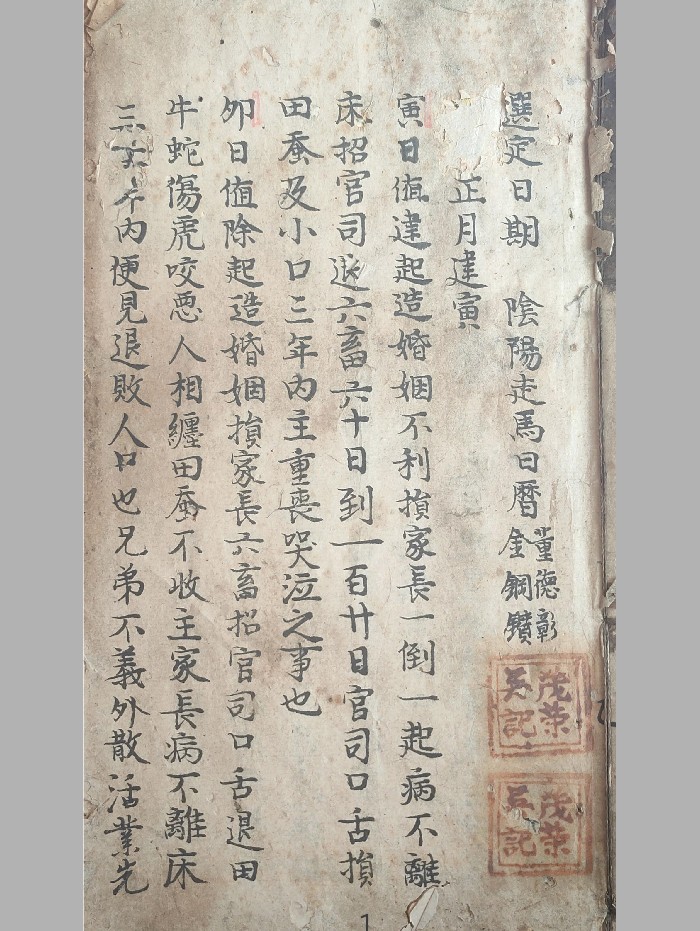 選定日期 陰陽走馬日曆 董德彰 金鋼鑽
正月建寅
寅日值建起造婚姻不利損家長一倒一起病不離
床招官司退六畜六十日到一百廿日官司口舌損
田蚕及小口三年内主重喪哭泣之事也
卯日值除起造婚姻損家長六畜招官司口舌退田
牛蛇傷虎咬悪人相纏田蚕不收主家長病不離床
三六年内便見退敗人口也兄弟不義外散活業先
茂荣
吳記
茂荣
吳記
1